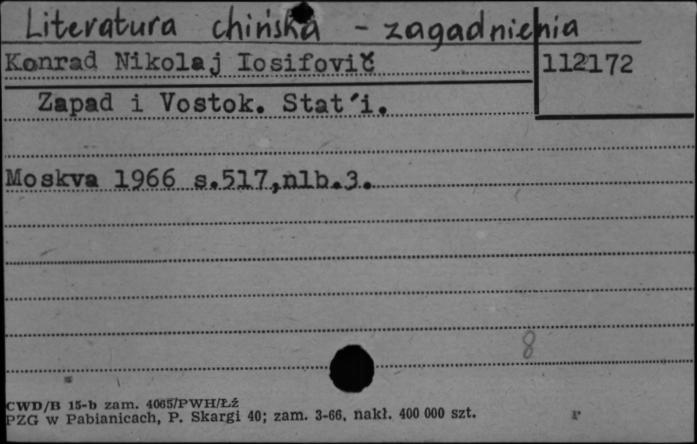 Literatura chińska - zagadnienia
Konrad Nikolaj Iosifovič
112172
Zapad i Vostok. Stat'i.
Moskva 1966 s.517,nlb.3.
8
CWD/B 15-b zam. 4065/PWH/Łź
PZG w Pabianicach, P. Skargi 40; zam. 3-66, nakł. 400 000 szt.
r